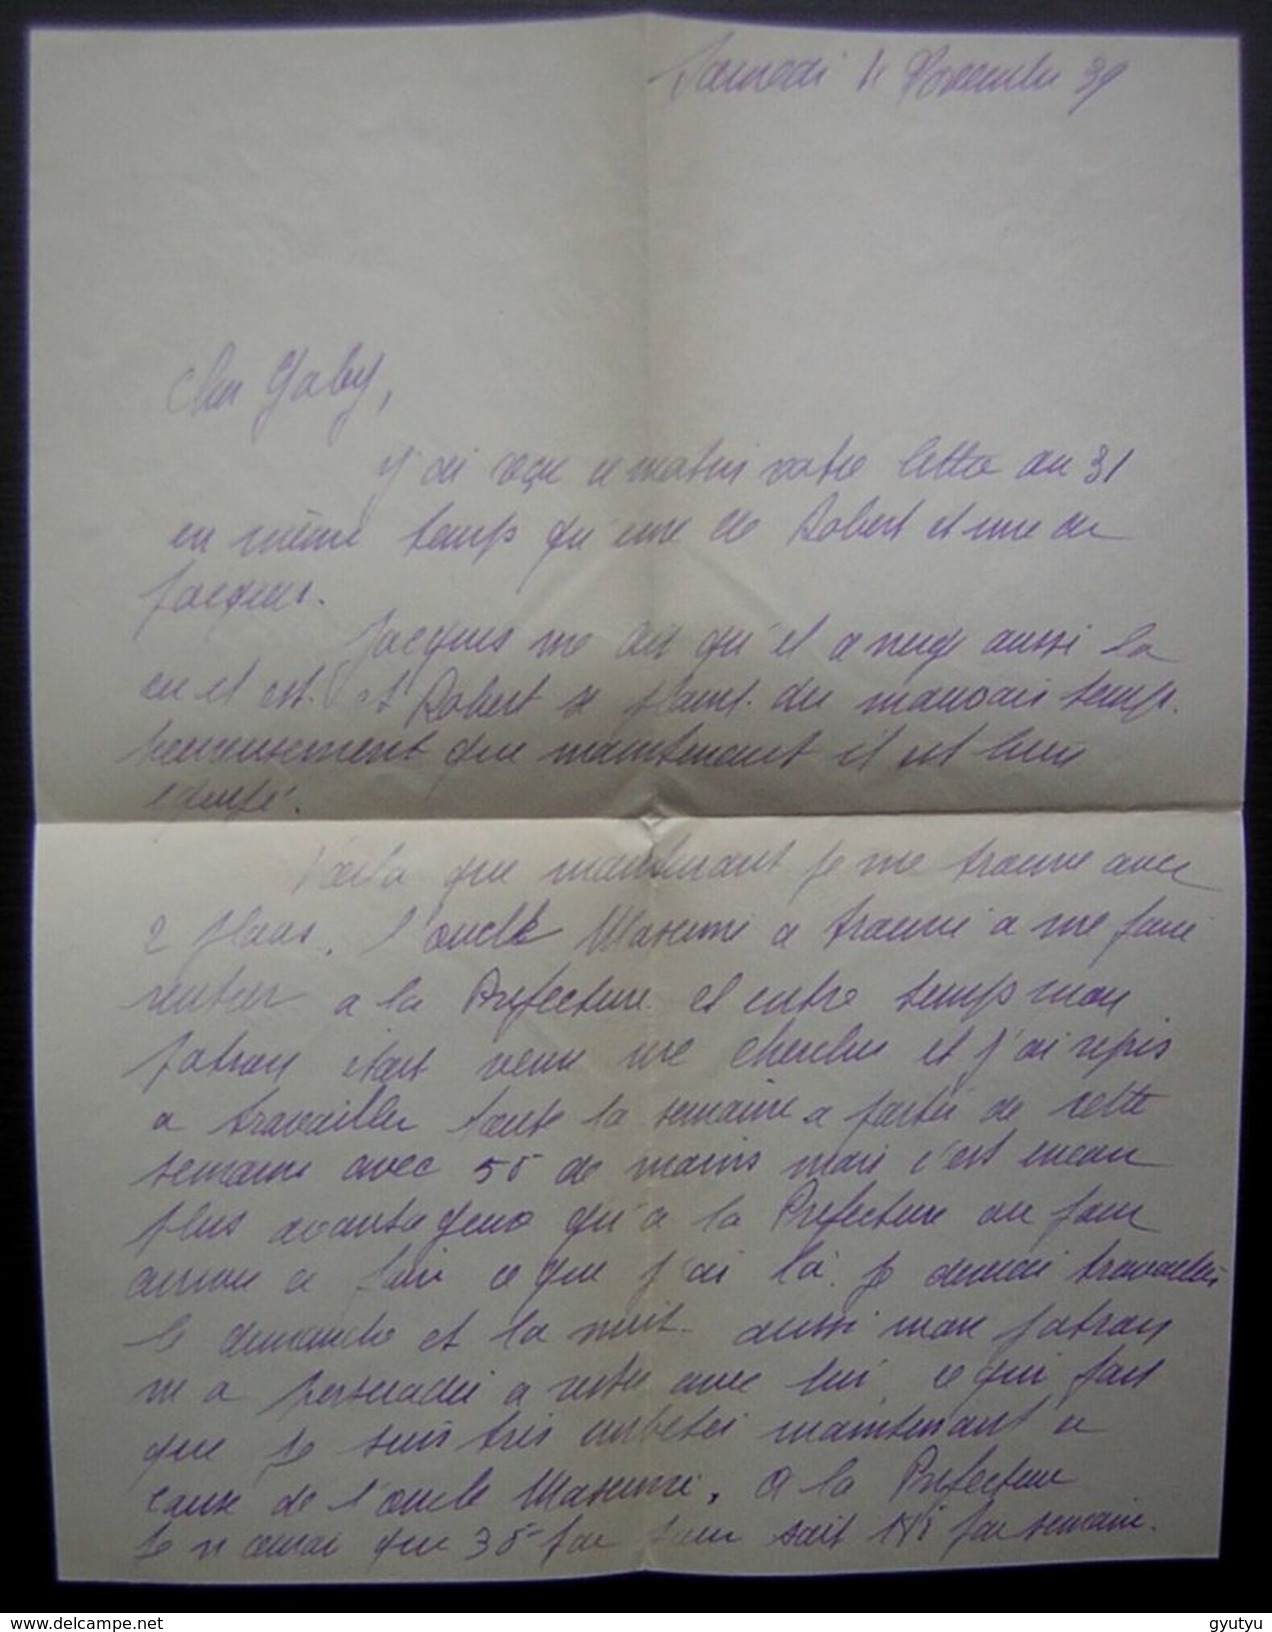 Samedi 4 Novembre 39
Cher Gaby,
J'ai reçu ce matin votre lettre du 31
en même temps qu'une de Robert et une de
Jacques.
Jacques me dit qu'il a neigé aussi la
ou il est. et Robert se plaint du mauvais temps.
heureusement que maintenant il est bien
équipé.
Voila que maintenant je me trouve avec
2 places. l'oncle a trouvé a me faire
rentrer a la Prefecture et entre temps mon
patron était venu me chercher et j'ai repris
a travailler toute la semaine a partir de cette
semaine avec 55 de moins mais c'est encore
plus avantageux qu'a la Prefecture ou pour
arriver a faire ce que j'ai là je devrai travailler
le dimanche et la nuit. aussi mon patron
m'a persuadé a rester avec lui, ce qui fait
que je suis très embêté maintenant a
cause de l'oncle . A la Prefecture
je n'aurai que 35 par jour soit par semaine.
delcampe.net
gyutyu